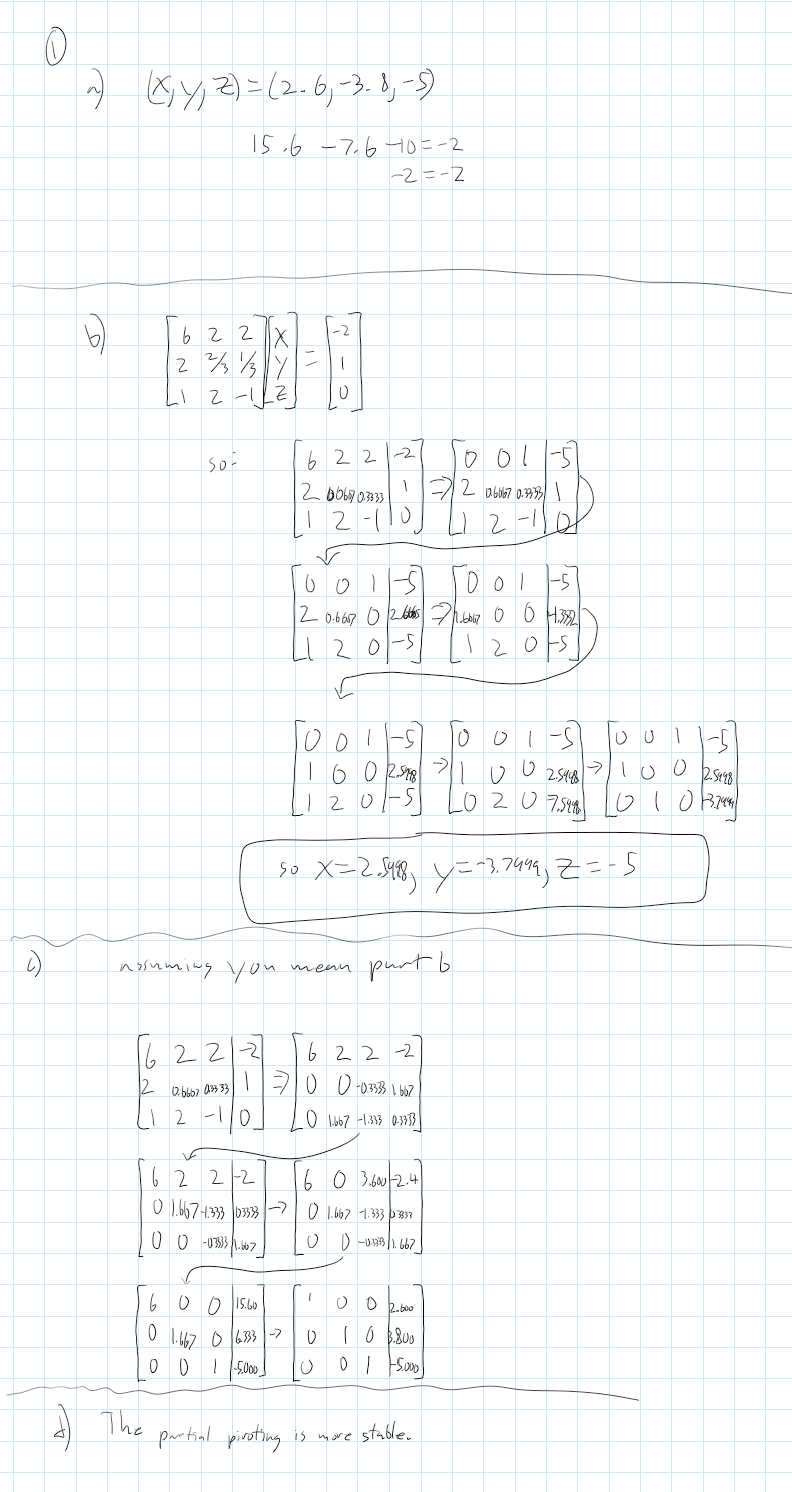 ①
a) (x, y, z) = (2.6, -3.8, -5)
15.6 -7.6 -10 = -2
-2 = -2
b) [6 2 2; 2 2/3 1/3; 1 2 -1] [x; y; z] = [-2; 1; 0]
so: [6 2 2 | -2; 2 0.6667 0.3333 | 1; 1 2 -1 | 0] ⇒ [0 0 1 | -5; 2 0.6667 0.3333 | 1; 1 2 -1 | 0]
[0 0 1 | -5; 2 0.6667 0 | 2.6665; 1 2 0 | -5] ⇒ [0 0 1 | -5; 1.6667 0 0 | 4.3332; 1 2 0 | -5]
[0 0 1 | -5; 1 0 0 | 2.5998; 1 2 0 | -5] → [0 0 1 -5; 1 0 0 2.5998; 0 2 0 -7.5998] → [0 0 1 | -5; 1 0 0 | 2.5998; 0 1 0 | -3.7999]
so x = 2.5998, y = -3.7999, z = -5
c) assuming you mean part b
[6 2 2 | -2; 2 0.6667 0.3333 | 1; 1 2 -1 | 0] ⇒ [6 2 2 -2; 0 0 -0.3333 1.667; 0 1.667 -1.333 0.3333]
[6 2 2 | -2; 0 1.667 -1.333 | 0.3333; 0 0 -0.3333 | 1.667] → [6 0 3.600 | -2.4; 0 1.667 -1.333 | 0.3333; 0 0 -0.3333 | 1.667]
[6 0 0 | 15.60; 0 1.667 0 | 6.333; 0 0 1 | -5.000] → [1 0 0 | 2.600; 0 1 0 | 3.800; 0 0 1 | -5.000]
d) The partial pivoting is more stable.